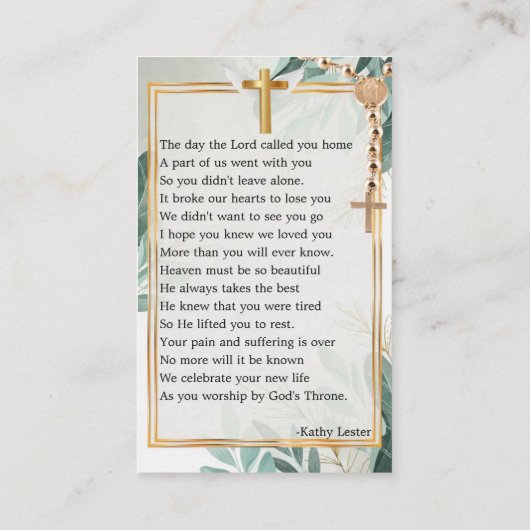 The day the Lord called you home
A part of us went with you
So you didn't leave alone.
It broke our hearts to lose you
We didn't want to see you go
I hope you knew we loved you
More than you will ever know.
Heaven must be so beautiful
He always takes the best
He knew that you were tired
So He lifted you to rest.
Your pain and suffering is over
No more will it be known
We celebrate your new life
As you worship by God's Throne.
-Kathy Lester